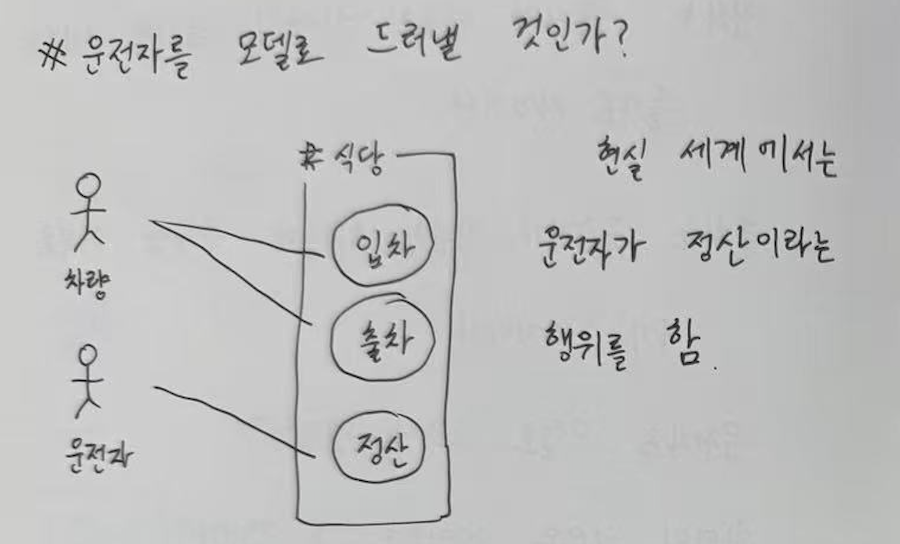 ※ 운전자를 모델로 드러낼 것인가?
# 식당
현실 세계에서는
운전자가 정산이라는
행위를 함.
입차
차량
출차
정산
운전자